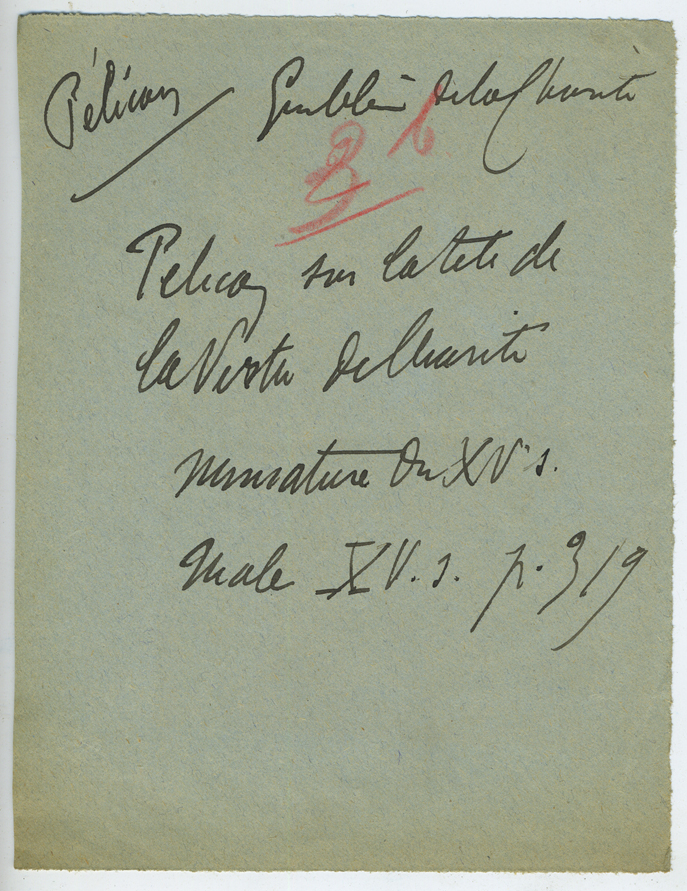 Pélican Emblème de la Charité
3 b
Pelican sur la tete de
la Vertu de Charité
miniature du XV s.
Male XV. s. p. 319